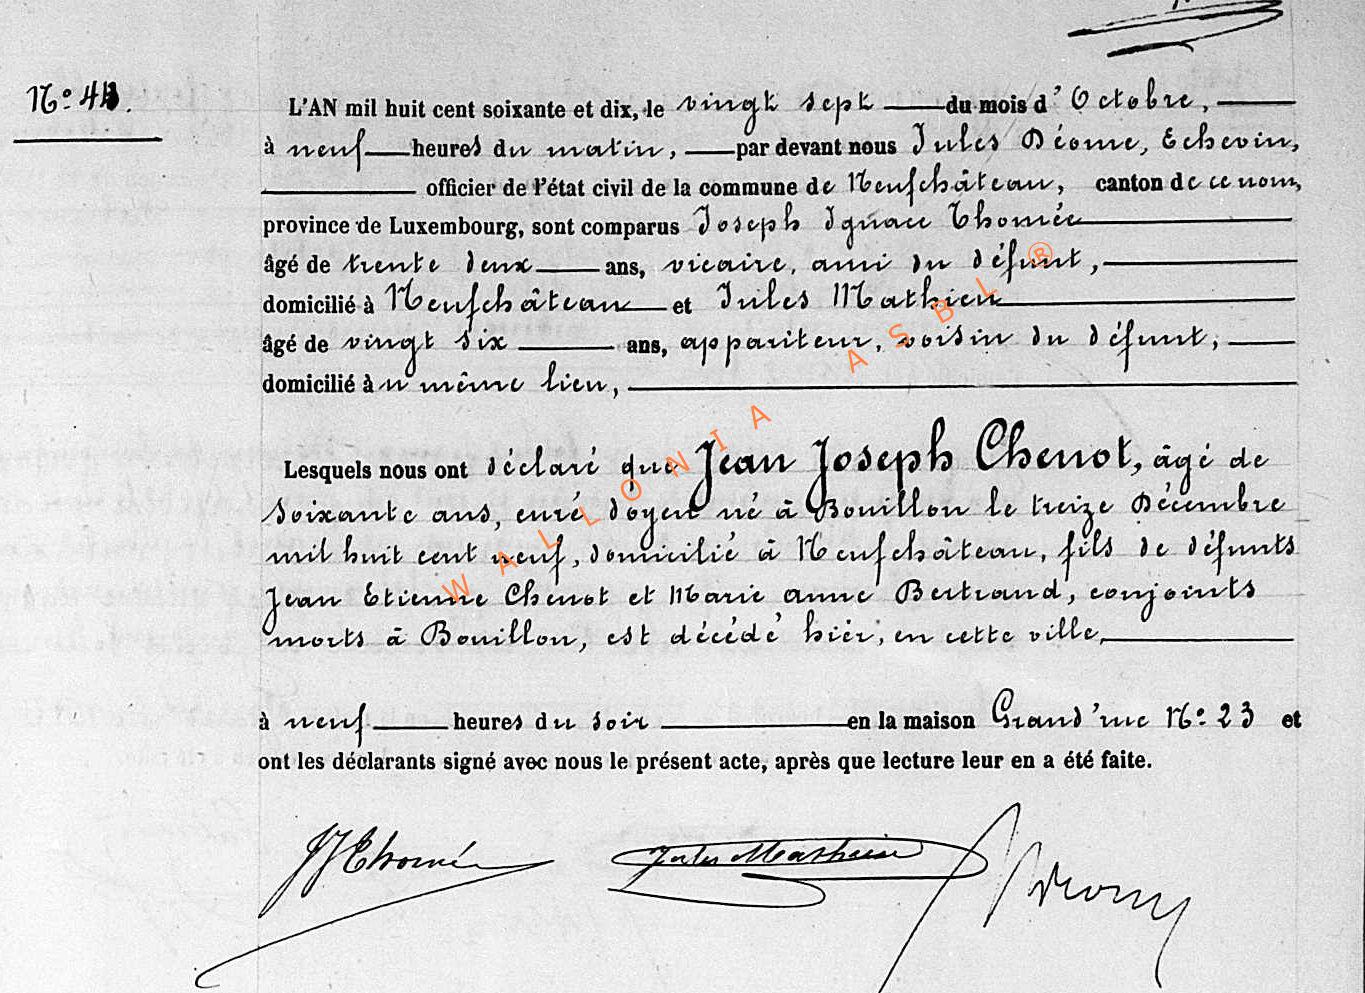 N° 44.
L'AN mil huit cent soixante et dix, le vingt sept du mois d'Octobre,
à neuf heures du matin, par devant nous Jules Déome, Echevin,
officier de l'état civil de la commune de Neufchâteau, canton de ce nom,
province de Luxembourg, sont comparus Joseph Ignace Thomée
âgé de trente deux ans, vicaire, ami du défunt,
domicilié à Neufchâteau et Jules Mathieu
âgé de vingt six ans, appariteur, voisin du défunt,
domicilié au même lieu,
Lesquels nous ont déclaré que Jean Joseph Chenot, âgé de
soixante ans, curé doyen né à Bouillon le treize Décembre
mil huit cent neuf, domicilié à Neufchâteau, fils de défunts
Jean Etienne Chenot et Marie anne Bertrand, conjoints
morts à Bouillon, est décédé hier, en cette ville,
à neuf heures du soir en la maison Grand'rue N° 23 et
ont les déclarants signé avec nous le présent acte, après que lecture leur en a été faite.
JJ Thomée Jules Mathieu
WALLONIA ASBL ®